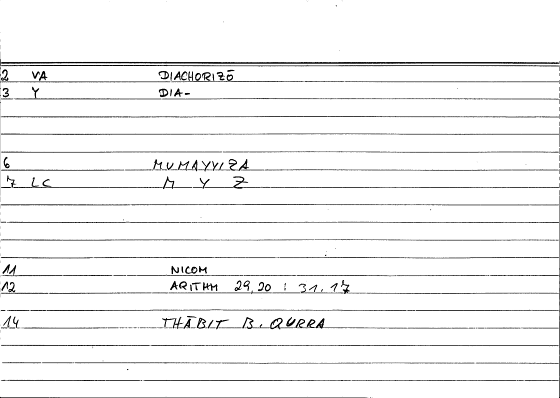 2 VA DIACHORIZŌ
3 Y DIA-
6 MUMAYYIZA
7 LC M Y Z
11 NICOM
12 ARITHM 29,20 : 31.17
14 THĀBIT B. QURRA